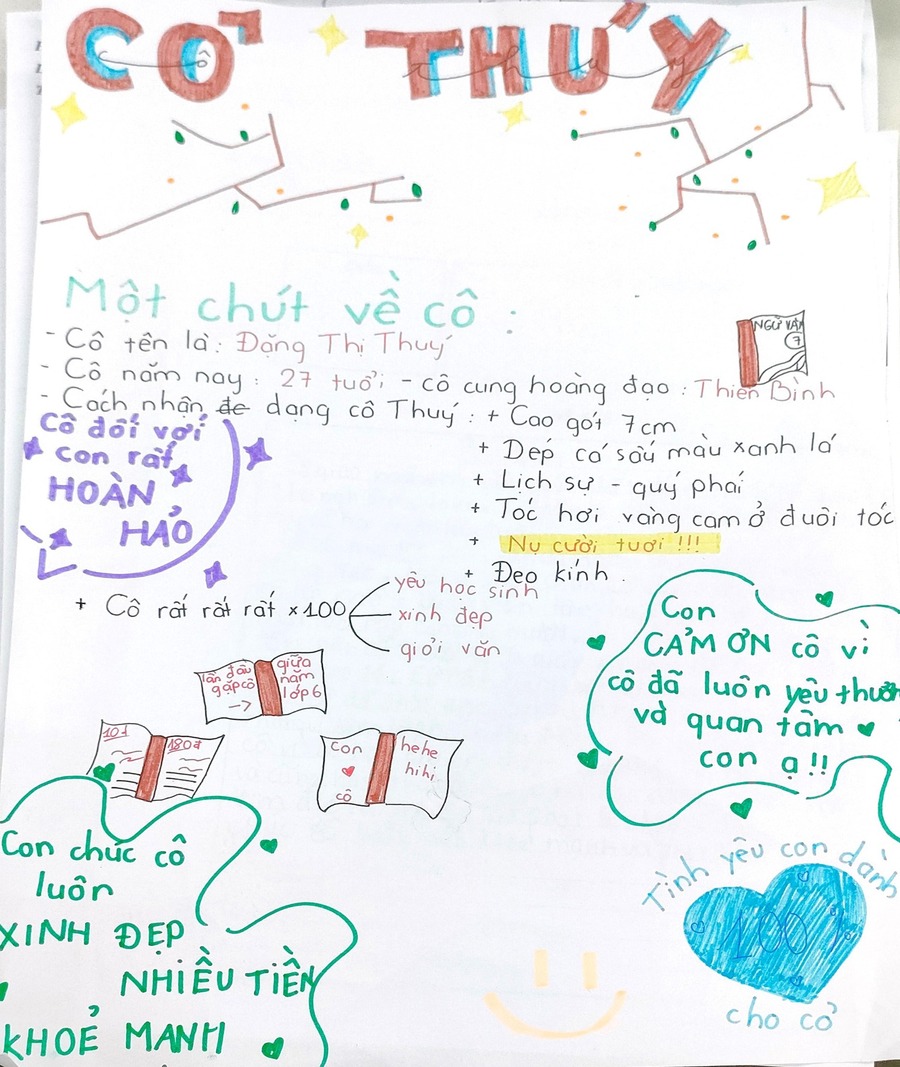 CÔ THUÝ
cô thuý
Một chút về cô :
NGỮ VĂN
7
- Cô tên là : Đặng Thị Thuý
- Cô năm nay : 27 tuổi - cô cung hoàng đạo : Thiên Bình
- Cách nhận dạng cô Thuý : + Cao gót 7cm
+ Dép cá sấu màu xanh lá
+ Lịch sự - quý phái
+ Tóc hơi vàng cam ở đuôi tóc
+ Nụ cười tươi !!!
+ Đeo kính .
Cô đối với
con rất
HOÀN
HẢO
+ Cô rất rất rất x100
yêu học sinh
xinh đẹp
giỏi văn
lần đầu
gặp cô
->
giữa
năm
lớp 6
10đ
180đ
con
cô
hehe
hihi
Con
CẢM ƠN cô vì
cô đã luôn yêu thương
và quan tâm
con ạ !!
Con chúc cô
luôn
XINH ĐẸP
NHIỀU TIỀN
KHOẺ MẠNH
Tình yêu con dành
100%
cho cô